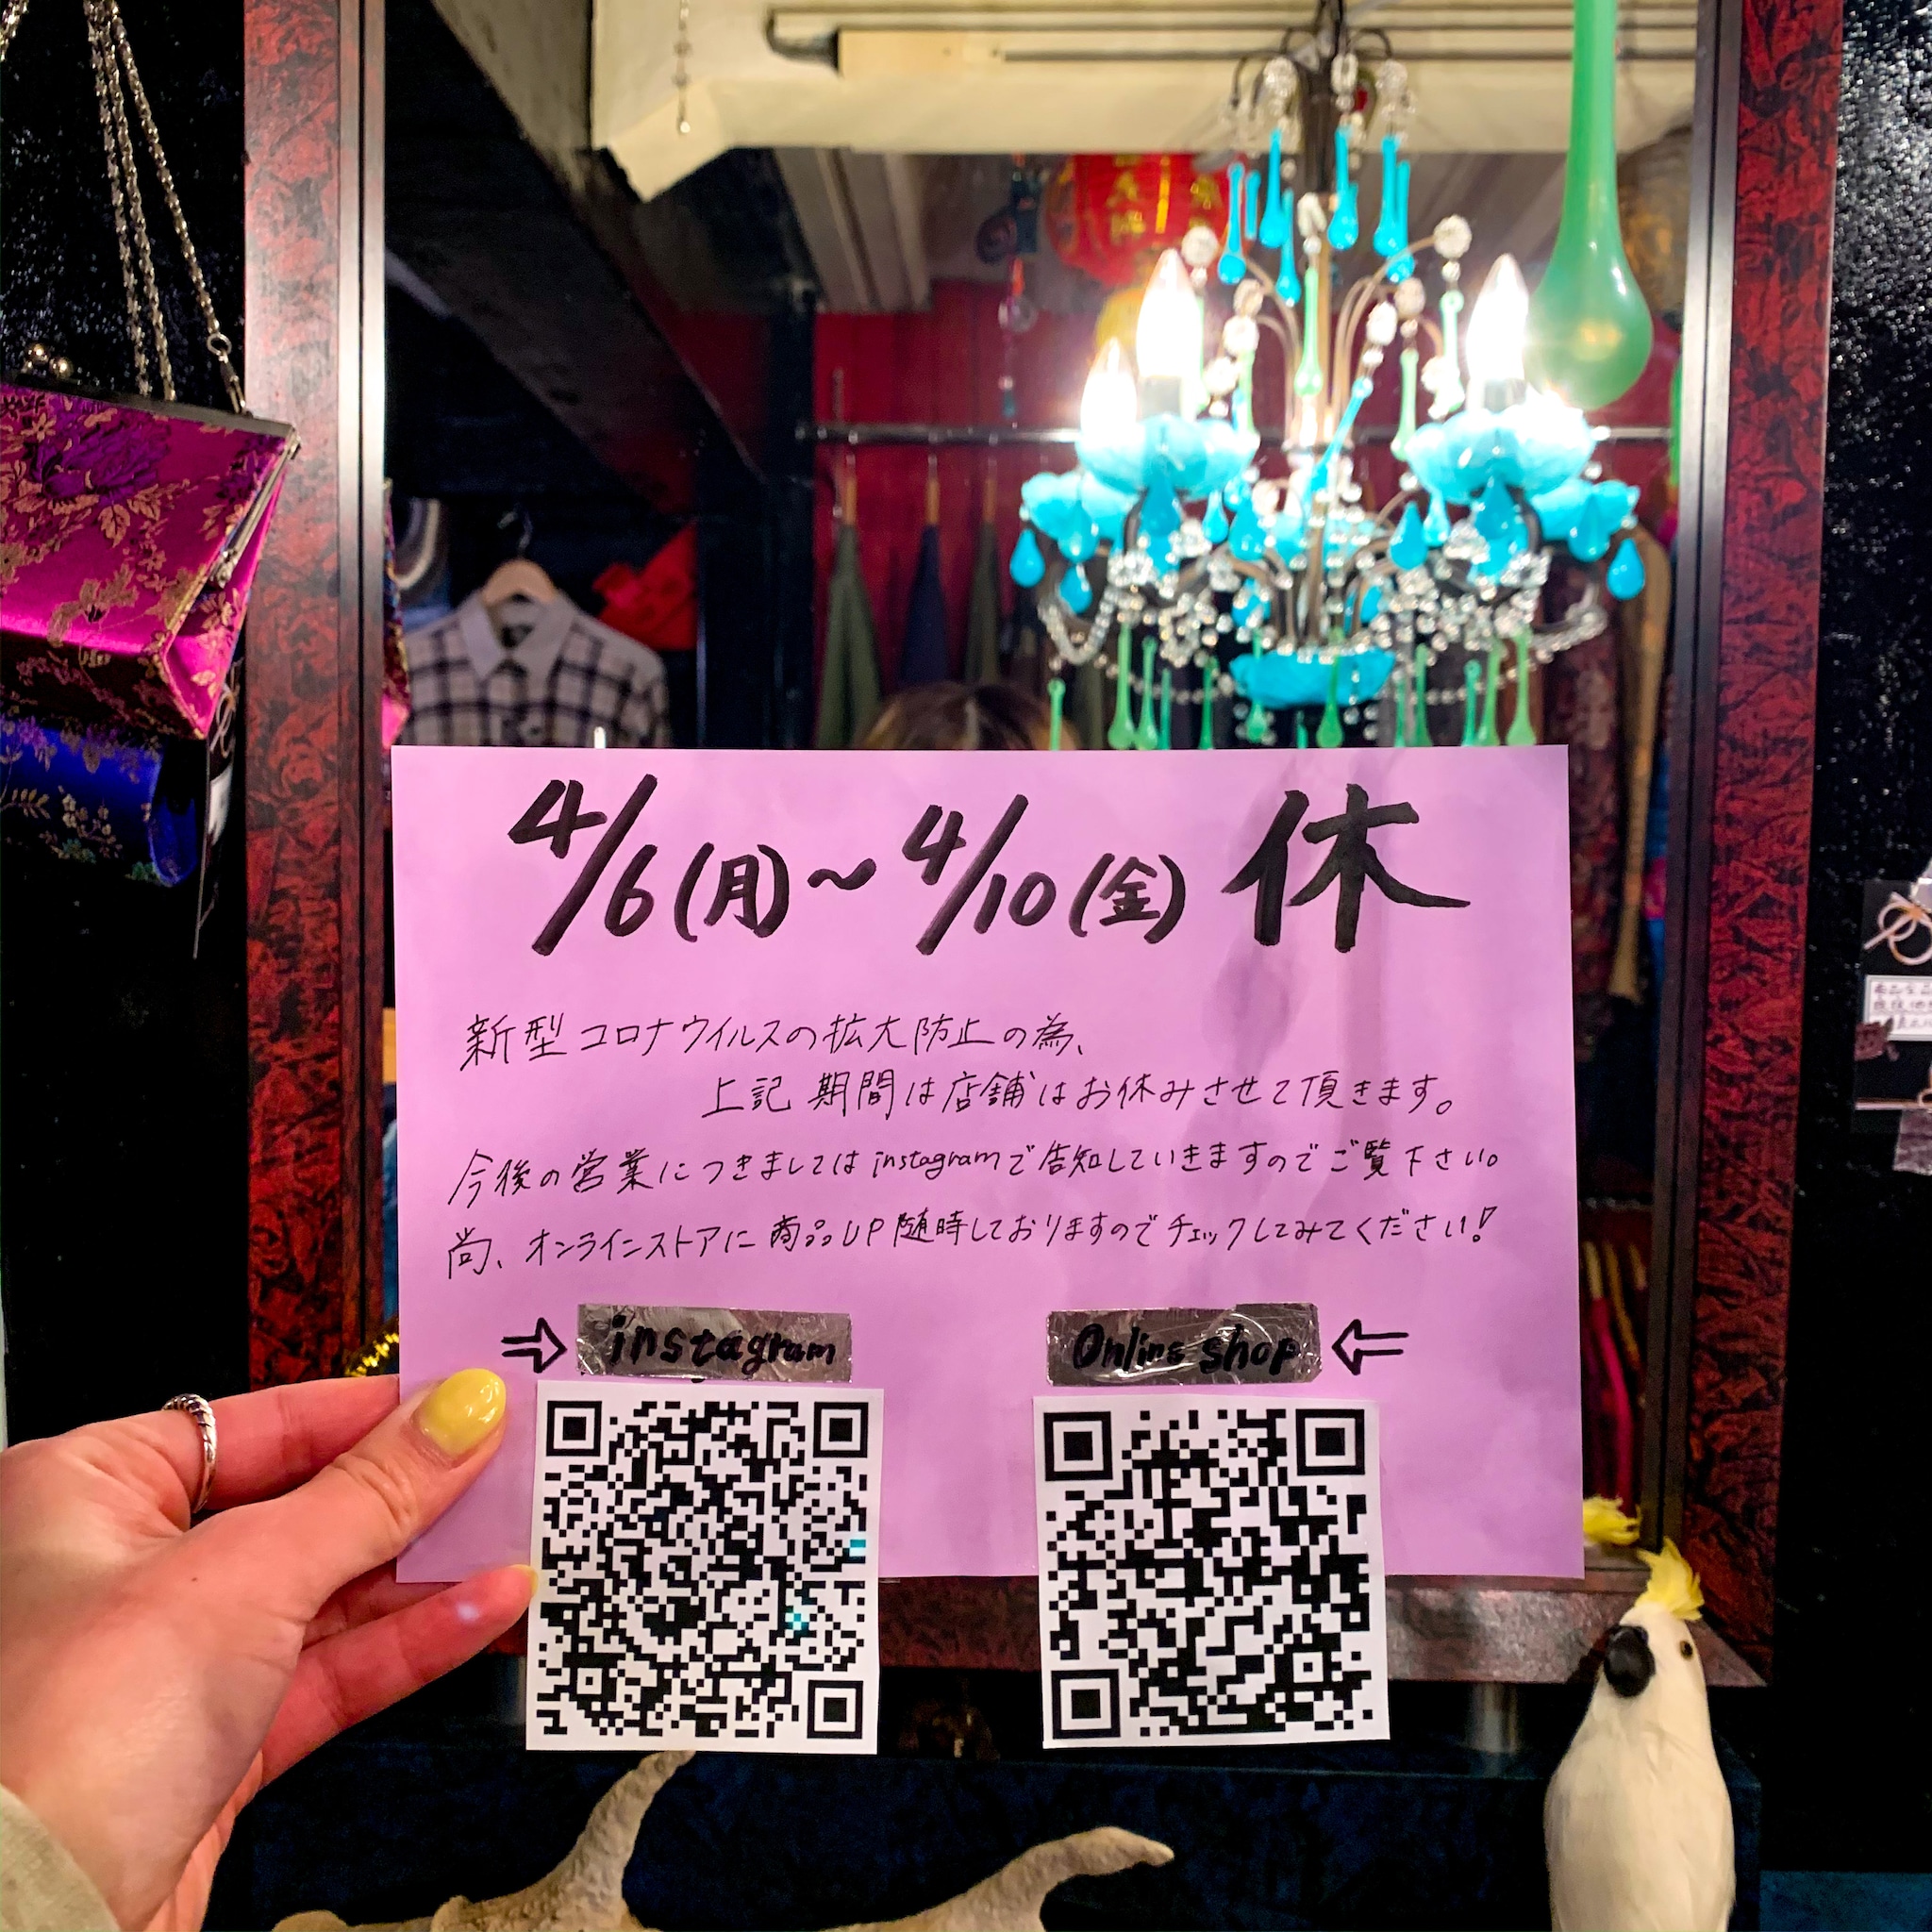 4/6(月)~4/10(金) 休
新型コロナウイルスの拡大防止の為、
上記期間は店舗はお休みさせて頂きます。
今後の営業につきましてはinstagramで告知していきますのでご覧下さい。
尚、オンラインストアに商品UP随時しておりますのでチェックしてみてください!
⇒ instagram
Online shop ⇐